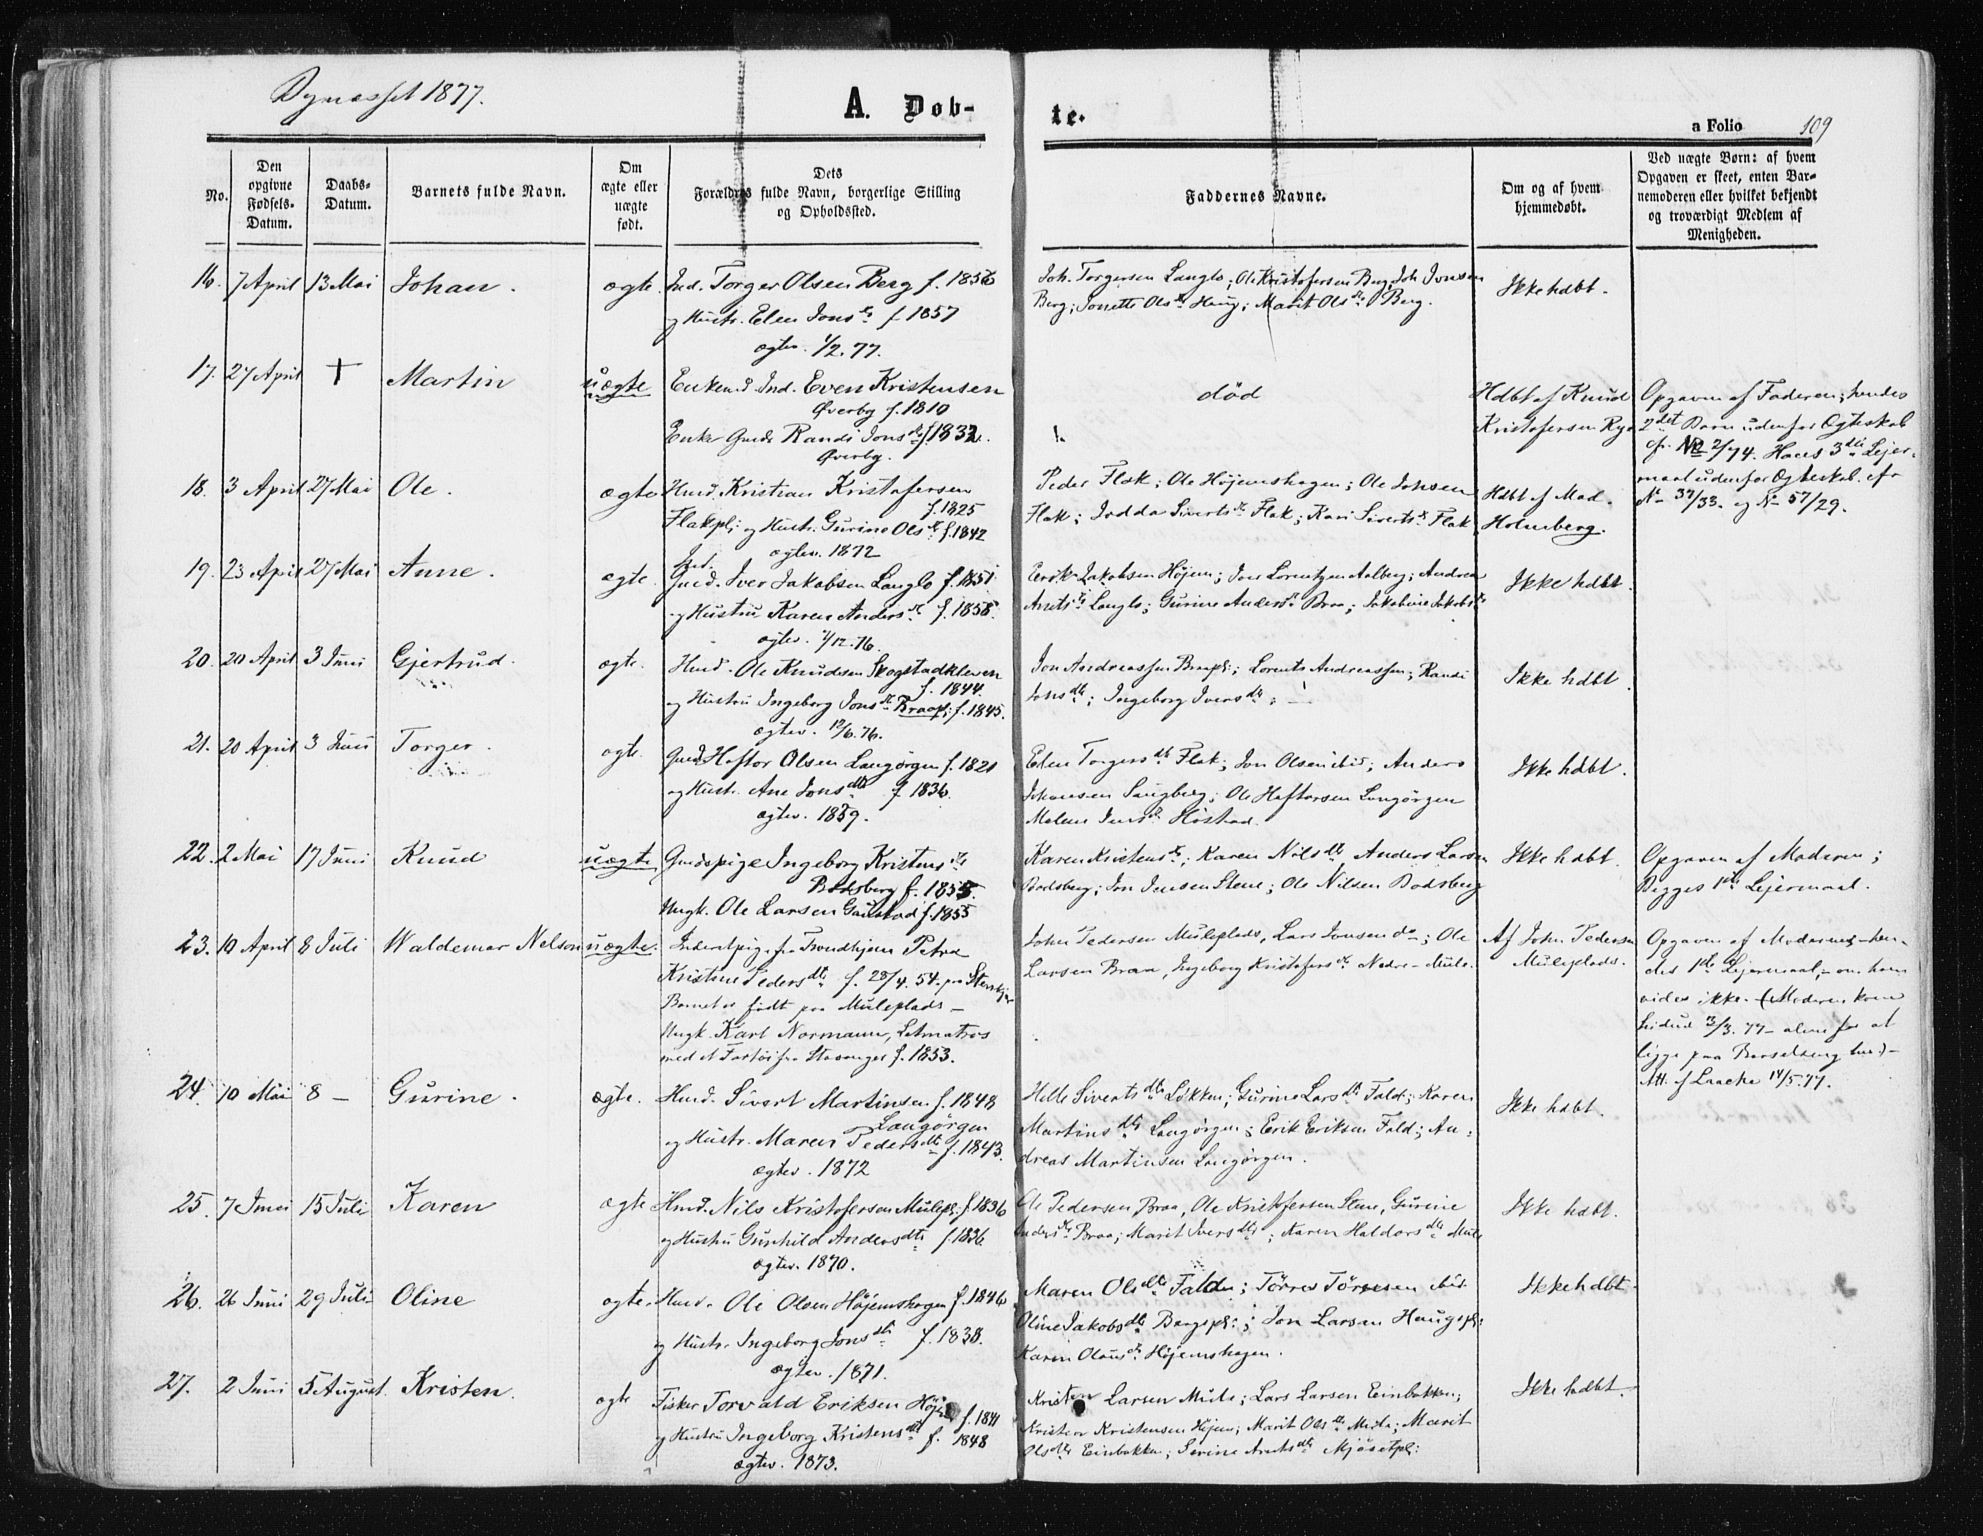 Bynæsset 1877.
A. Døb-
te.
a Folio 109
No.
Den opgivne Fødsels-Datum.
Daabs-Datum.
Barnets fulde Navn.
Om ægte eller uægte født.
Dets Forældres fulde Navn, borgerlige Stilling og Opholdssted.
Faddernes Navne.
Om og af hvem hjemmedøbt.
Ved uægte Børn: af hvem Opgaven er skeet, enten Barnemoderen eller hvilket bekjendt og troværdigt Medlem af Menigheden.
16. 7 April 13 Mai Johan. ægte. Ind. Torger Olsen Berg f. 1856
og Hustr. Elen Jonsdtr f. 1857
ægtev. 1/2. 77.
Joh. Torgersen Langlo; Ole Kristofersen Berg; Joh Jonsen
Berg; Jonette Olsdtr Haug; Marit Olsdtr Berg.
Ikke hdbt.
17. 27 April + Martin uægte Enkemd. Ind. Even Kristensen
Øverby f. 1810
Enke Gmds Randi Jonsdtr f. 1832.
Øverby.
død
Hdbt af Knud
Kristofersen Rye
Opgaven af Faderen; hendes
2det Barn udenfor Ægteskab
cfr. No 2/74. Hans 3die Lejer-
maal udenfor Ægteskab. cfr
No 37/33. og No 57/29.
18. 3 April 27 Mai Ole. ægte Hmd. Kristian Kristofersen
f. 1825
Flakpl; og Hustr. Gurine Olsdtr f. 1842
ægtev. 1872
Peder Flak; Ole Højemshagen; Ole Johsen
Flak; Jodda Sivertsdtr Flak; Kari Sivertsdtr Flak
Hdbt af Mad.
Holmberg.
19. 23 April 27 Mai Anne. ægte. Ind.
Gmd. Iver Jakobsen Langlo f. 1851
og Hustru Karen Andersdtr f. 1858.
ægtev. 1/12. 76.
Eerik Jakobsen Højem; Jon Lorentzen Aalberg; Andrea
Arntsdtr Langlo; Gurine Andersdtr Braa; Jakobine Jakobsdtr
Ikke hdbt.
20. 20 April 3 Juni Gjertrud. ægte. Hmd. Ole Knudsen Skogstadkleven
f. 1844.
og Hustru Ingeborg Jonsdtr Braapl; f. 1845.
ægtev. 12/6. 76.
Jon Andreassen Braapl; Lorents Andreassen; Randi
Jonsdtr; Ingeborg Iversdtr;
Ikke hdbt.
21. 20 April 3 Juni Torger. ægte. Gmd. Haftor Olsen Langørgen f. 1821
og Hustr. Ane Jonsdtr f. 1836.
ægtev. 1859.
Elen Torgersdtr Flak; Jon Olsen ibid; Anders
Johansen Saugberg; Ole Haftorsen Langørgen
Malene Jensdtr Høstad.
Ikke hdbt.
22. 2 Mai 17 Juni Knud uægte Gmdspige Ingeborg Kristensdtr
Bodsberg f. 1855.
Ungk. Ole Larsen Gaustad f. 1855
Karen Kristensdtr; Karen Nilsdtr Anders Larsen
Bodsberg; Jon Jensen Stene; Ole Nilsen Bodsberg
Ikke hdbt.
Opgaven af Moderen;
Begges 1ste Lejermaal.
23. 10 April 8 Juli Waldemar Nelson uægte. Inderstpige fra Trondhjem Petra
Kristine Pedersdtr f. 28/4. 54. paa Stenkjær
Barnet er født paa Muleplads –
Ungk. Karl Normann, Letmatros
med et Fartøi fra Stavanger f. 1853.
John Pedersen Muleplads, Lars Jonsen do; Ole
Larsen Braa, Ingeborg Kristofersdtr Nedre-Mule.
Af John Pedersen
Muleplads.
Opgaven af Moderens – hen-
des 1ste Lejermaal, – om ham
vides ikke. (Moderen kom
hidud 3/3. 77 – alene for at
ligge paa Barselseng her) –
Att. af Laache 14/5. 77.
24. 10 Mai 8 – Gurine. ægte. Hmd. Sivert Martinsen f. 1848
Langørgen
og Hustr. Maren Pedersdtr f. 1843.
ægtev. 1872
Helle Sivertsdtr Løkken; Gurine Larsdtr Fald; Karen
Martinsdtr Langørgen; Eerik Eriksen Fald; An-
dreas Martinsen Langørgen.
Ikke hdbt.
25. 7 Juni 15 Juli Karen ægte Hmd. Nils Kristofersen Mulepl. f. 1836
og Hustru Gunhild Andersdtr f. 1836.
ægtev. 1870.
Ole Pedersen Braa, Ole Kristofersen Stene, Gurine
Andersdtr Braa; Marit Iversdtr; Karen Haldorsdtr Mule
Ikke hdbt.
26. 26 Juni 29 Juli Oline ægte. Hmd. Ole Olsen Højemshagen f. 1846
og Hustr. Ingeborg Jonsdtr f. 1838.
ægtev. 1871.
Maren Olsdtr Falde; Tørres Tørresen ibid.
Oline Jakobsdtr Bergspl; Jon Larsen Haugspl;
Karen Olausdtr Højemshagen.
Ikke hdbt.
27. 2 Juni 5 August. Kristen. ægte Fisker Torvald Eriksen Højem f. 1841
og Hustru Ingeborg Kristensdtr f. 1848
ægtev. 1873.
Kristen Larsen Mule; Lars Larsen Einbakken;
Kristen Kristensen Højem; Marit Olsdtr Mule; Marit
Olsdtr Einbakken; Serine Arntsdtr Mjøsetpl;
Ikke hdbt.